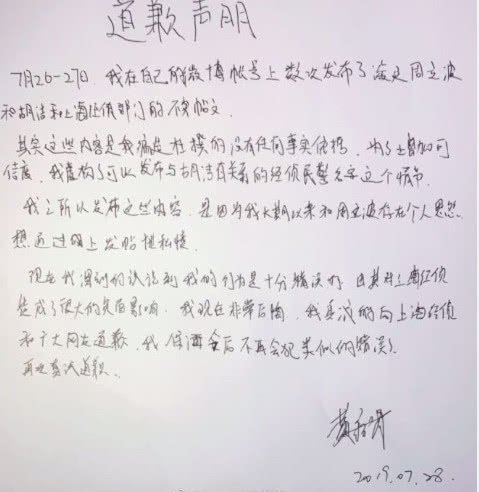 道歉声明
7月26-27日，我在自己的微博帐号上数次发布了涉及周立波
和胡洁和上海经侦部门的不实帖文。
其实这些内容是我编造杜撰的没有任何事实依据，为了增加可
信度，我虚构了可以发布与胡洁有关系的经侦民警名字这个情节。
我之所以发布这些内容，是因为我长期以来和周立波存在个人恩怨，
想通过网上发帖泄私愤。
现在我深刻的认识到我的行为是十分错误的，尤其对上海经侦
造成了很大的负面影响，我现在非常后悔，我真诚的向上海经侦
和广大网友道歉，我保证今后不再会犯类似的错误。
再次真诚道歉。
2019.07.28.